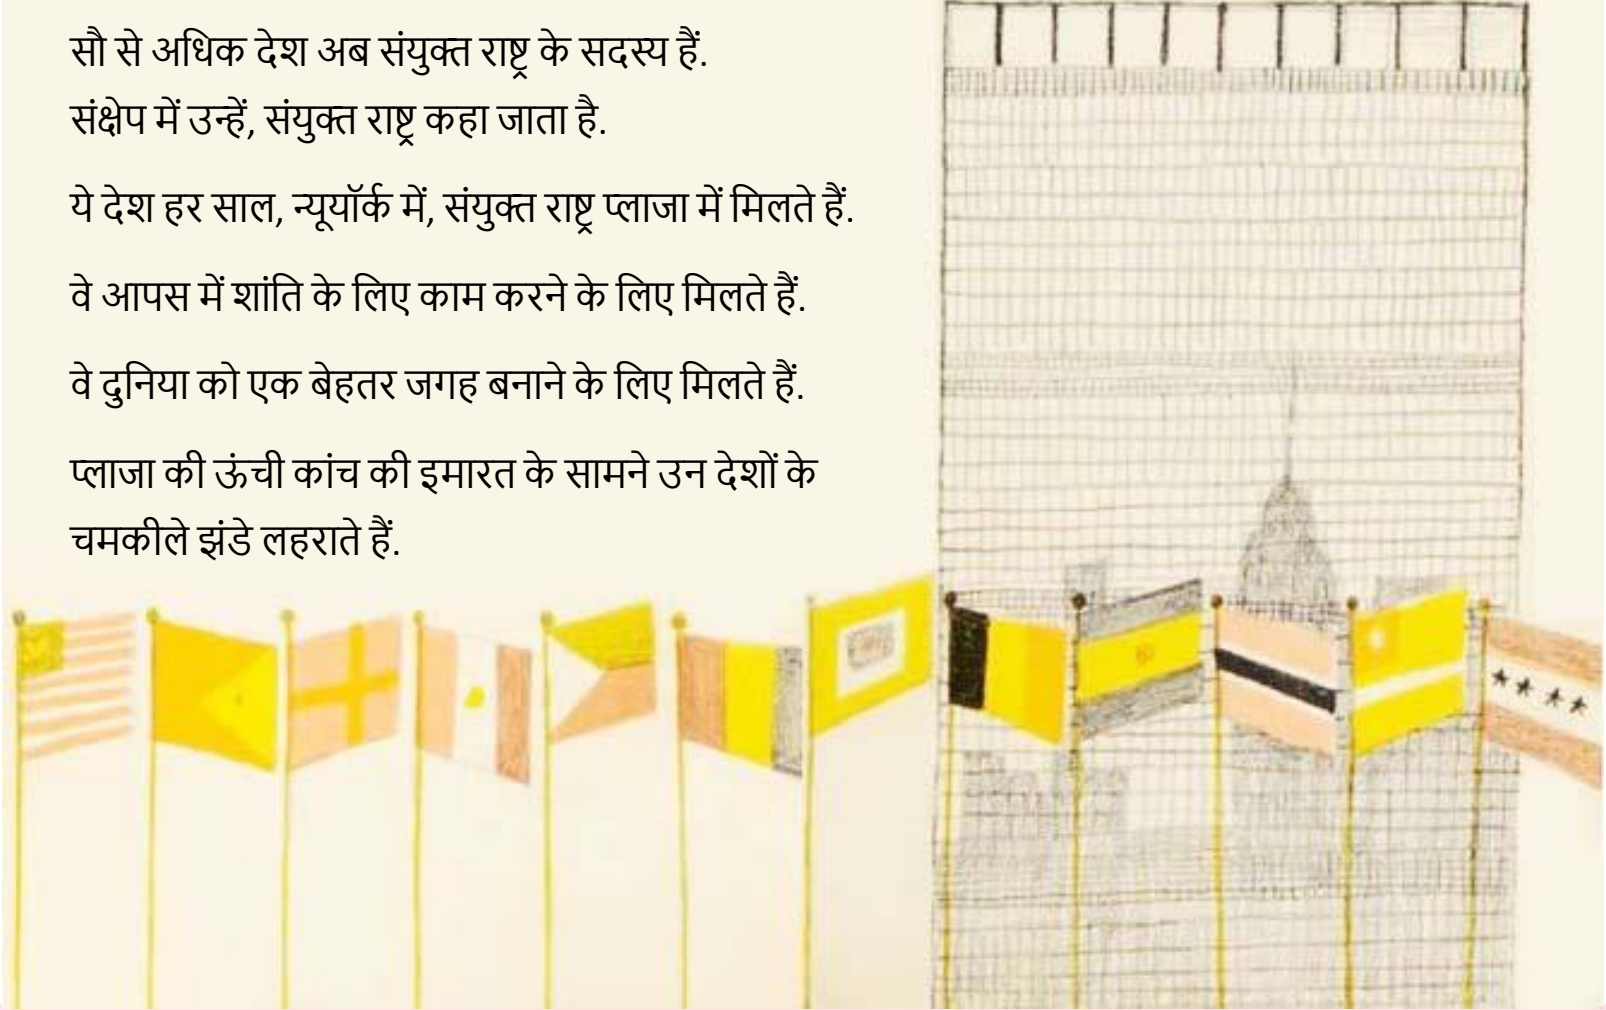 सौ से अधिक देश अब संयुक्त राष्ट्र के सदस्य हैं.
संक्षेप में उन्हें, संयुक्त राष्ट्र कहा जाता है.
ये देश हर साल, न्यूयॉर्क में, संयुक्त राष्ट्र प्लाजा में मिलते हैं.
वे आपस में शांति के लिए काम करने के लिए मिलते हैं.
वे दुनिया को एक बेहतर जगह बनाने के लिए मिलते हैं.
प्लाजा की ऊंची कांच की इमारत के सामने उन देशों के
चमकीले झंडे लहराते हैं.